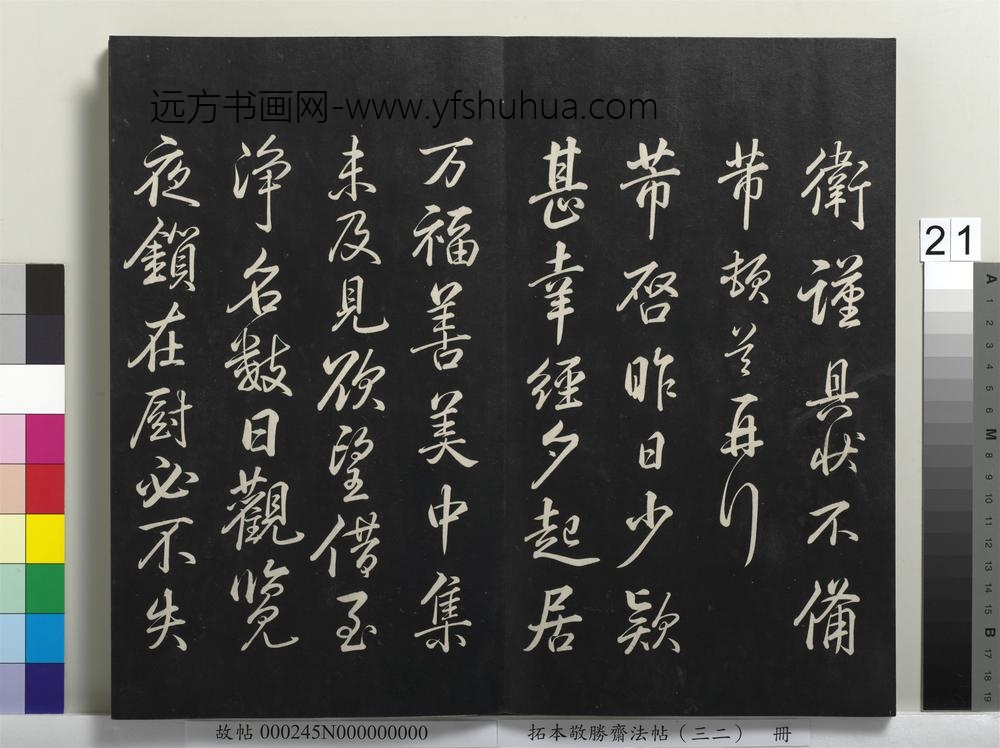 远方书画网-www.yfshuhua.com
衛謹具状不備
芾頓首再拜
芾启昨日少款
甚幸經夕起居
万福善美中集
未及見欲望借至
淨名數日觀覽
夜鎖在厨必不失
21
A 1 2 3 4 5 6 M 8 9 10 11 12 13 14 15 B 17 18 19
故帖 000245N000000000
拓本敬勝齋法帖（三二） 冊